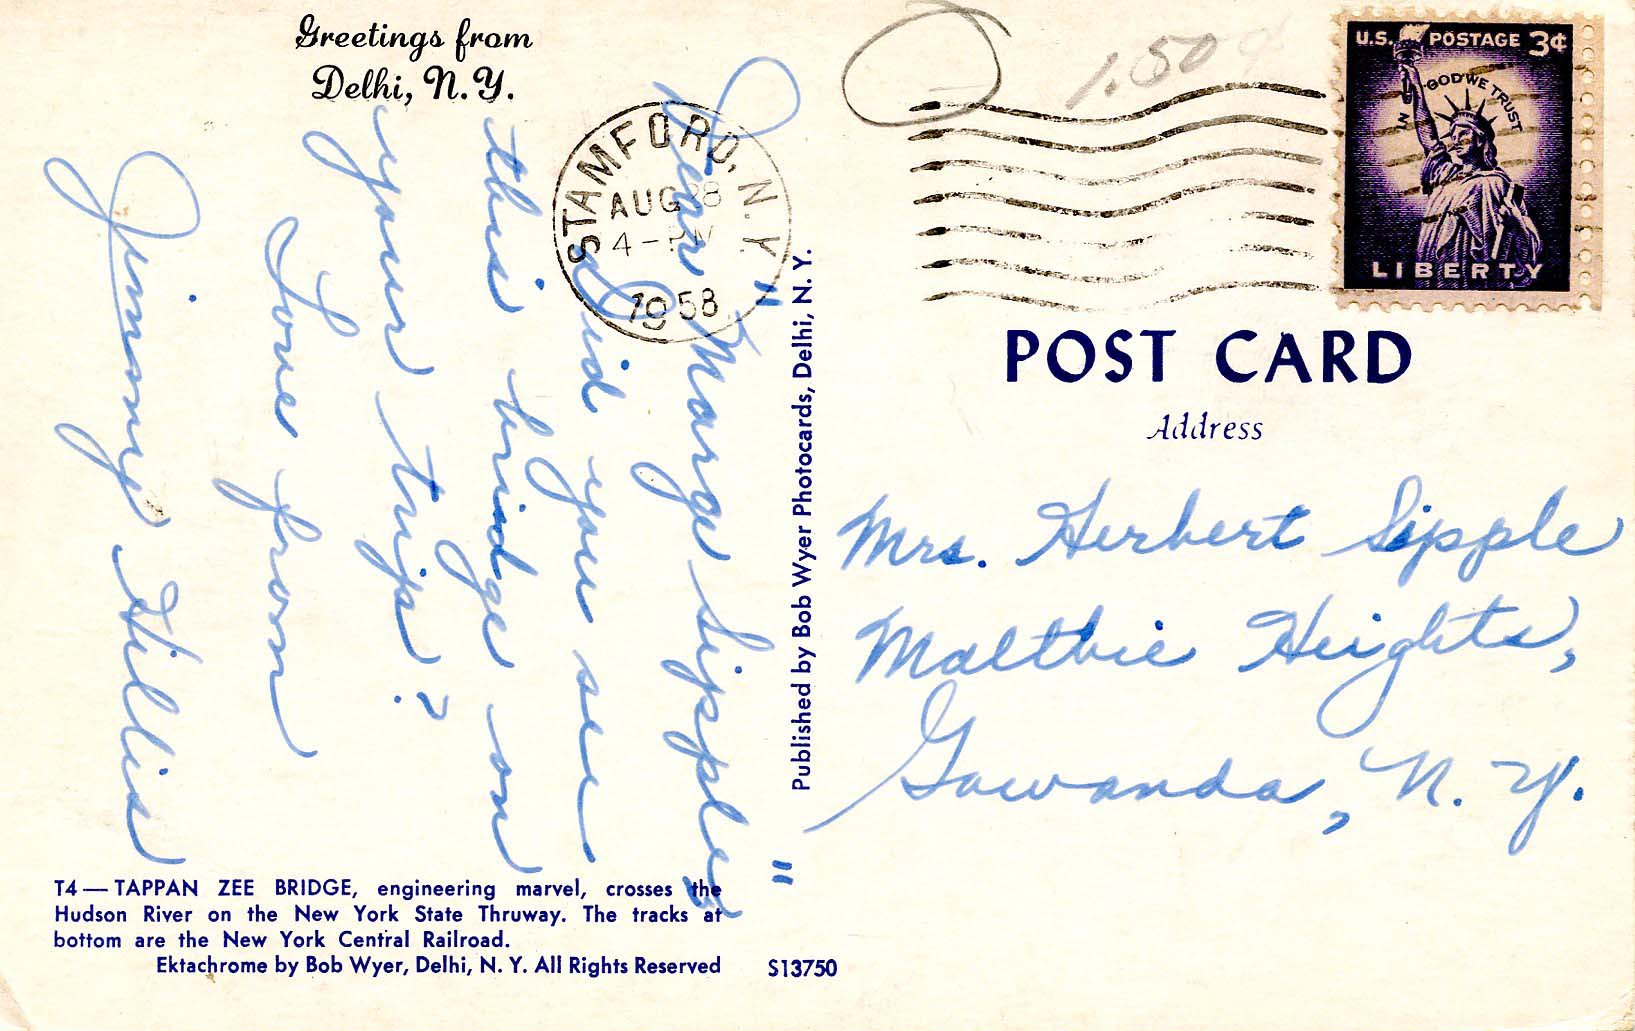 Greetings from
Delhi, N.Y.
Dear "Marge Sipples"
Did you see
this bridge on
your trip?
Love from
Jimmy Hillis
T4 — TAPPAN ZEE BRIDGE, engineering marvel, crosses the
Hudson River on the New York State Thruway. The tracks at
bottom are the New York Central Railroad.
Ektachrome by Bob Wyer, Delhi, N. Y. All Rights Reserved
S13750
Published by Bob Wyer Photocards, Delhi, N. Y.
STAMFORD, N.Y.
AUG 28
4 - PM
1958
1.50
U.S. POSTAGE 3¢
IN GOD WE TRUST
LIBERTY
POST CARD
Address
Mrs. Herbert Sipple
Maltbie Heights,
Gowanda, N. Y.